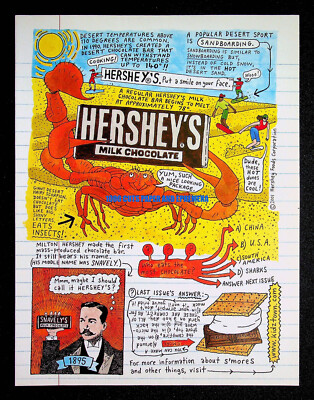 DESERT TEMPERATURES ABOVE
110 DEGREES ARE COMMON.
IN 1990, HERSHEY'S CREATED A
DESERT CHOCOLATE BAR THAT
CAN WITHSTAND
TEMPERATURES
UP TO 140°!!
COOKING!
A POPULAR DESERT SPORT
IS SANDBOARDING.
SANDBOARDING IS SIMILAR TO
SNOWBOARDING BUT,
INSTEAD OF COLD SNOW,
IT'S IN THE HOT
DESERT SAND.
WOOO!
HERSHEY'S. Put a smile on your face.
A REGULAR HERSHEY'S MILK
CHOCOLATE BAR BEGINS TO MELT
AT APPROXIMATELY 78°
HERSHEY'S
MILK CHOCOLATE
Dude,
these
HOT
dunes
are
COOL!
YUM, SUCH
A NICE LOOKING
PACKAGE.
GIANT DESERT
HAIRY SCORPION
DOESN'T EAT
CHOCOLATE BUT
DOES LIKE
BIG, SHINY
LETTERS.
EATS
INSECTS!
©2001 Hershey Foods Corporation
MILTON HERSHEY made the first
mass-produced chocolate bar.
It still bears his name.
(HIS MIDDLE NAME WAS SNAVELY.)
Mmm, maybe I
should call
it HERSHEY'S?
SNAVELY'S
MILK CHOCOLATE
1895
WHO EATS THE
MOST CHOCOLATE?
A) CHINA
B) U.S.A.
C) SOUTH
AMERICA
D) SHARKS
ANSWER NEXT ISSUE
LAST ISSUE'S ANSWER:
www.kidztown.com
For more information about s'mores
and other things, visit